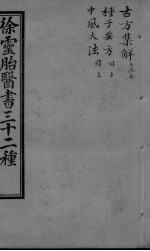 古方集解
種子要方 同上
中風大法 同上
徐靈胎醫書三十二種